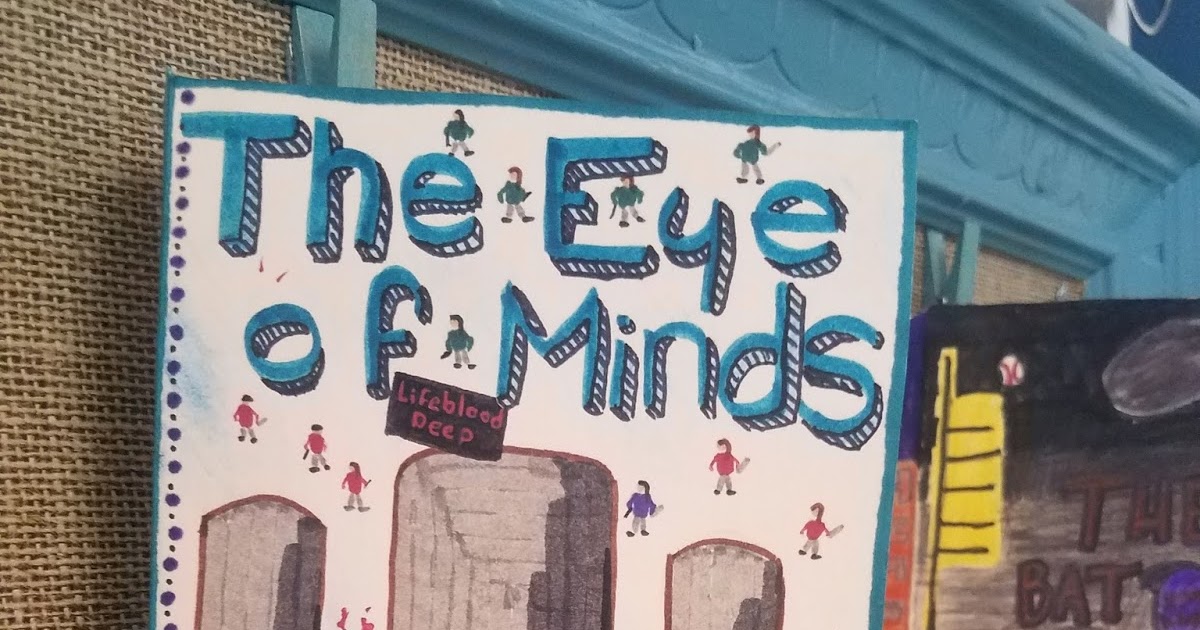 The Eye
of Minds
Lifeblood
Deep
BAT